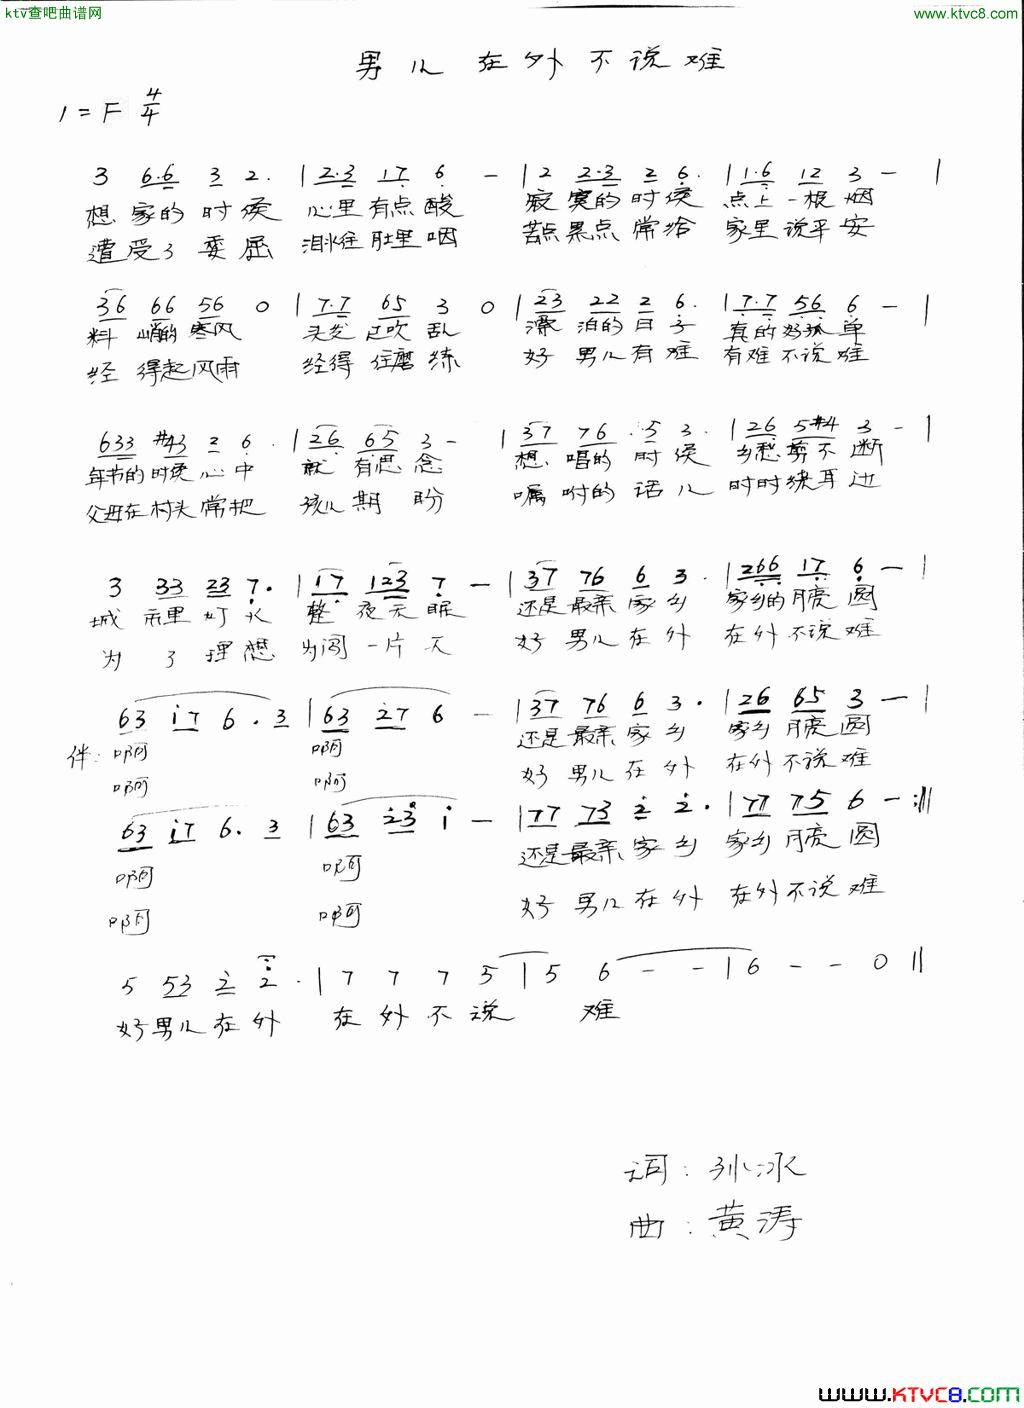 ktv查吧曲谱网
www.ktvc8.com
男儿在外不说难
1=F 4/4
3 6.6 3 2. | 2.3 17 6 - | 2 2.3 2 6. | 1.6 12 3 - |
想家的时候 心里有点酸 寂寞的时候 点上一根烟
遭受了委屈 泪水往肚里咽 苦点累点常给 家里说平安
36 66 56 0 | 7.7 65 3 0 | 23 22 2 6. | 7.7 56 6 - |
料峭的寒风 头发已吹乱 漂泊的日子 真的好孤单
经得起风雨 经得住磨练 好男儿有难 有难不说难
633 #43 2 6. | 26 65 3 - | 37 76 .5 3. | 26 5#4 3 - |
年节的时候心中 就有思念 想唱的时候 乡愁剪不断
父母在村头常把 孩儿期盼 嘱咐的话儿 时时绕耳边
3 33 23 7. | 17 123 7 - | 37 76 6 3. | 266 17 6 - |
城市里灯火 整夜无眠 还是最亲家乡 家乡的月亮圆
为了理想 为闯一片天 好男儿在外 在外不说难
63 i7 6. 3 | 63 27 6 - | 37 76 6 3. | 26 65 3 - |
伴: 啊 啊 还是最亲家乡 家乡月亮圆
啊 啊 好男儿在外 在外不说难
63 i7 6. 3 | 63 23 i - | 77 73 2 2. | 77 75 6 - :||
啊 啊 还是最亲家乡 家乡月亮圆
啊 啊 好男儿在外 在外不说难
5 53 2 2. | 7 7 7 5 | 5 6 - - | 6 - - 0 ||
好男儿在外 在外不说 难
词: 孙冰
曲: 黄涛
www.KTVC8.com